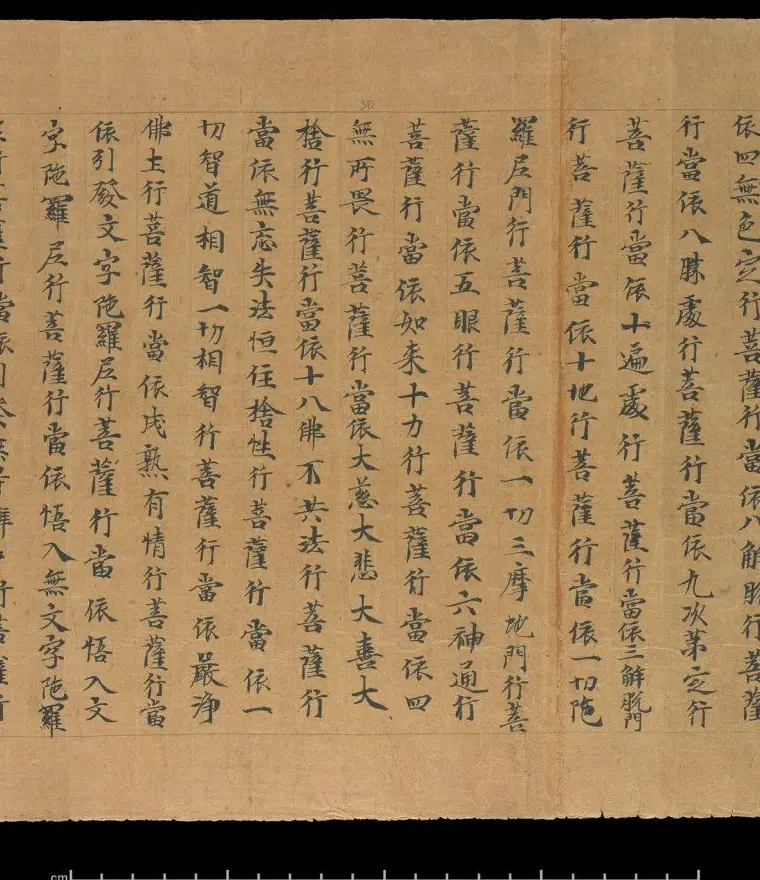 依四無色定行菩薩行當依八解脫行菩薩
行當依八勝處行菩薩行當依九次第定行
菩薩行當依十遍處行菩薩行當依三解脫門
行菩薩行當依十地行菩薩行當依一切陁
羅尼門行菩薩行當依一切三摩地門行菩
薩行當依五眼行菩薩行當依六神通行
菩薩行當依如来十力行菩薩行當依四
無所畏行菩薩行當依大慈大悲大喜大
捨行菩薩行當依十八佛不共法行菩薩行
當依無忘失法恒住捨性行菩薩行當依一
切智道相智一切相智行菩薩行當依嚴淨
佛土行菩薩行當依成熟有情行菩薩行當
依引發文字陁羅尼行菩薩行當依悟入文
字陁羅尼行菩薩行當依悟入無文字陁羅
30
cm